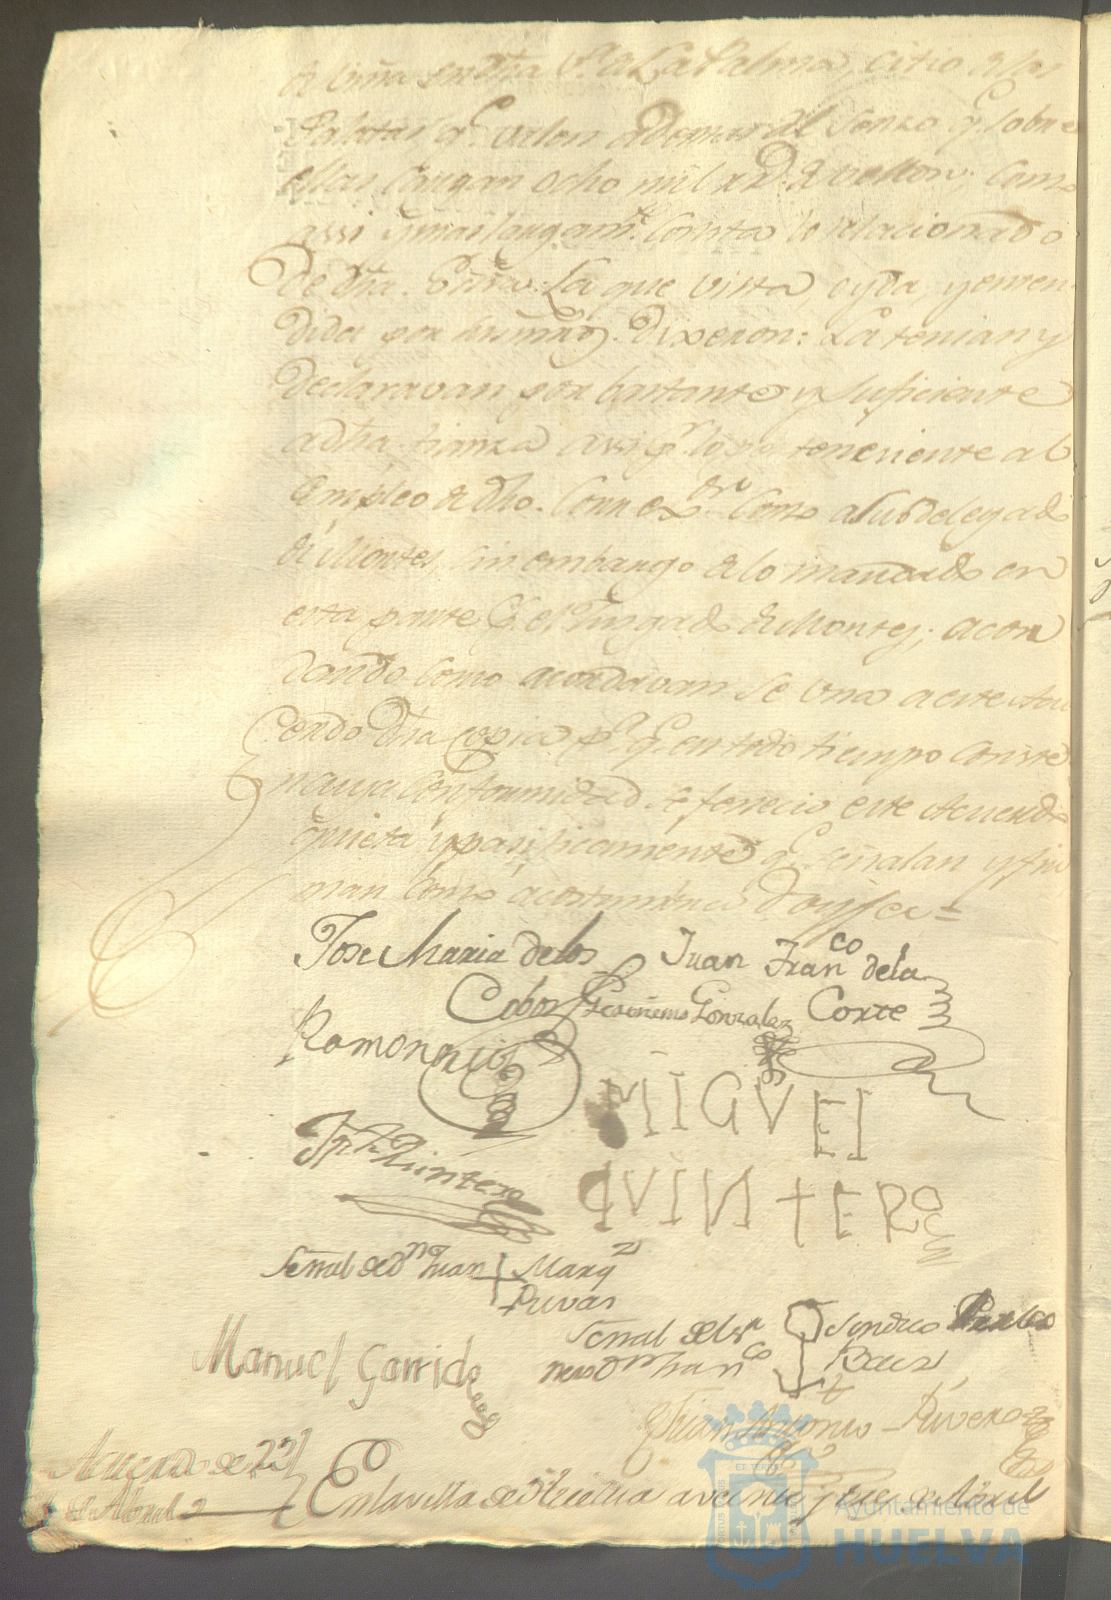 de viña en dha Vª de La Palma, citio de las
Palatas qe. valen ademas del senzo qe sobre
ellas cargan ocho mil rs. de vellon; como
assi y mas largamte. consta lo relacionado
de dha. Escra. La que vista, oyda, y enten
dida por sus mrds. Dixeron: La tenian y
declaravan por bastante y suficiente
a dha fianza assi pr. lo perteneciente al
empleo de dho. Correxor. como a Subdelegado
de Montes, sin embargo de lo mandado en
esta parte el Juzgado de Montes; acor
dando como acordavan se una a este Acu
erdo dha copia pa. qe. en todo tiempo conste
en cuia conformidad se fenecio este Acuerdo
quieta y pasificamente qe señalan y fir
man como acostumbran Doy fee =
Jose Maria de los
Cobos
Juan Franco dela
Corte
Geronimo Gonzalez
Ramon
MIGVEl
QVINTERO
Quintero
Señal de Dn Juan + Marqz
Rivas
Señal del Sr Sindico
nero Dn Franco
Manuel Garrido
Juan Antonio Rivero
Acuerdo de 23
de Abril
En la villa de Huelva a veinte y tres de Abril
Ayuntamiento de
HUELVA